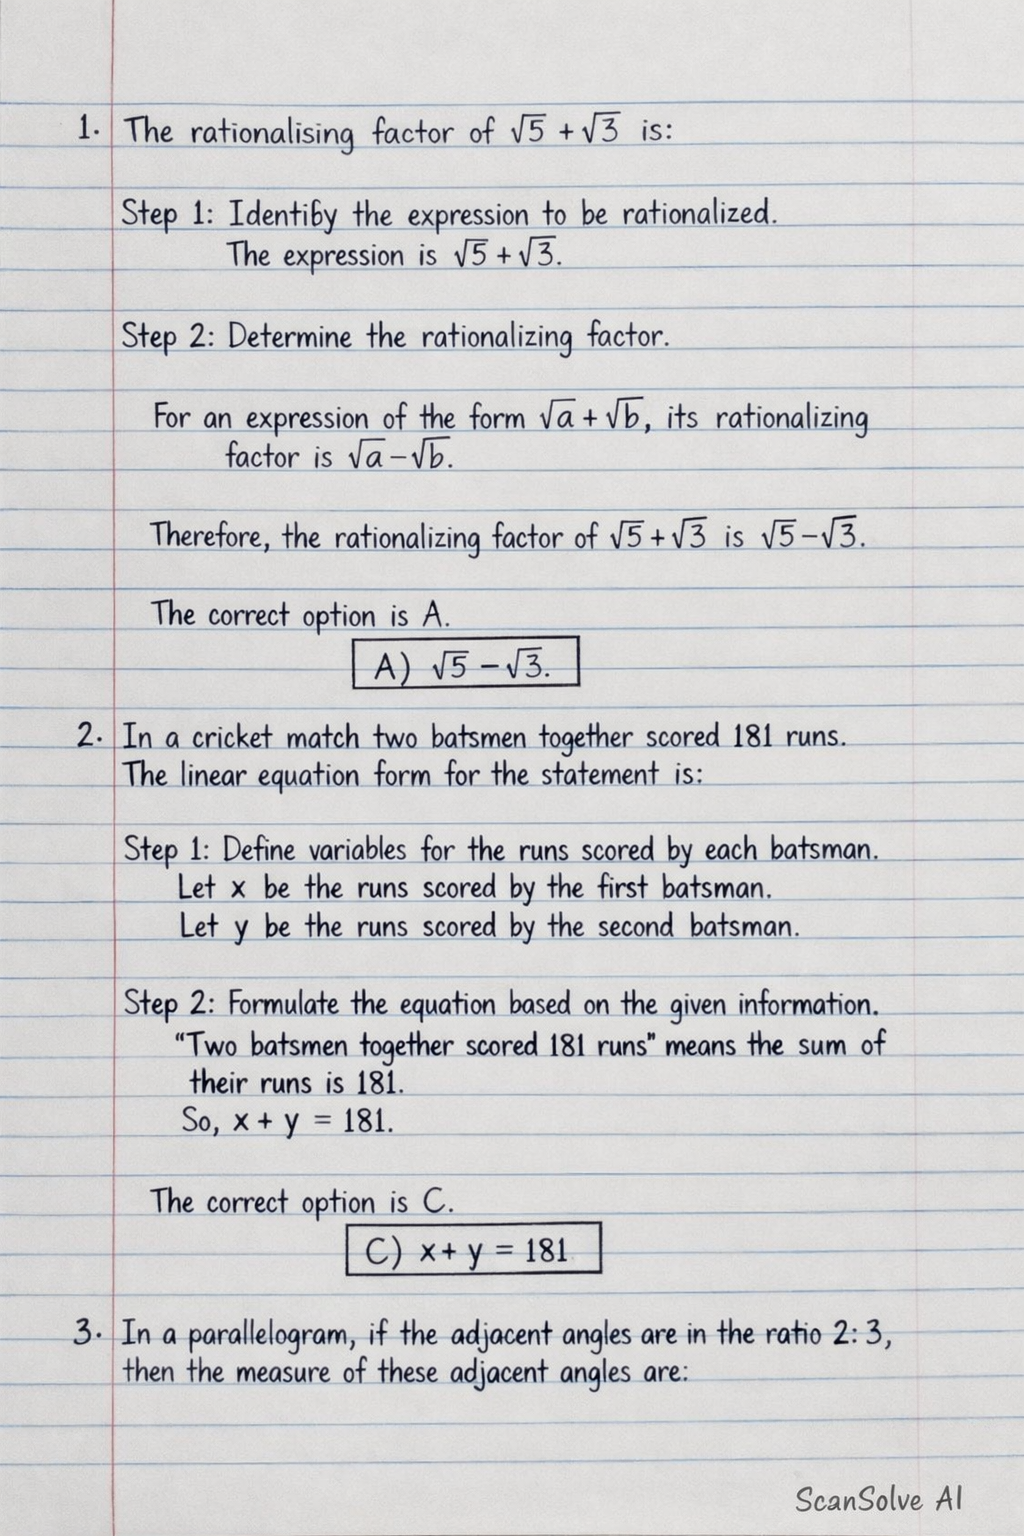 1. The rationalising factor of √5 + √3 is:
Step 1: Identiby the expression to be rationalized.
The expression is √5 + √3.
Step 2: Determine the rationalizing factor.
For an expression of the form √a + √b, its rationalizing
factor is √a − √b.
Therefore, the rationalizing factor of √5 + √3 is √5 − √3.
The correct option is A.
A) √5 − √3.
2. In a cricket match two batsmen together scored 181 runs.
The linear equation form for the statement is:
Step 1: Define variables for the runs scored by each batsman.
Let x be the runs scored by the first batsman.
Let y be the runs scored by the second batsman.
Step 2: Formulate the equation based on the given information.
“Two batsmen together scored 181 runs” means the sum of
their runs is 181.
So, x + y = 181.
The correct option is C.
C) x + y = 181
3. In a parallelogram, if the adjacent angles are in the ratio 2:3,
then the measure of these adjacent angles are:
ScanSolve AI